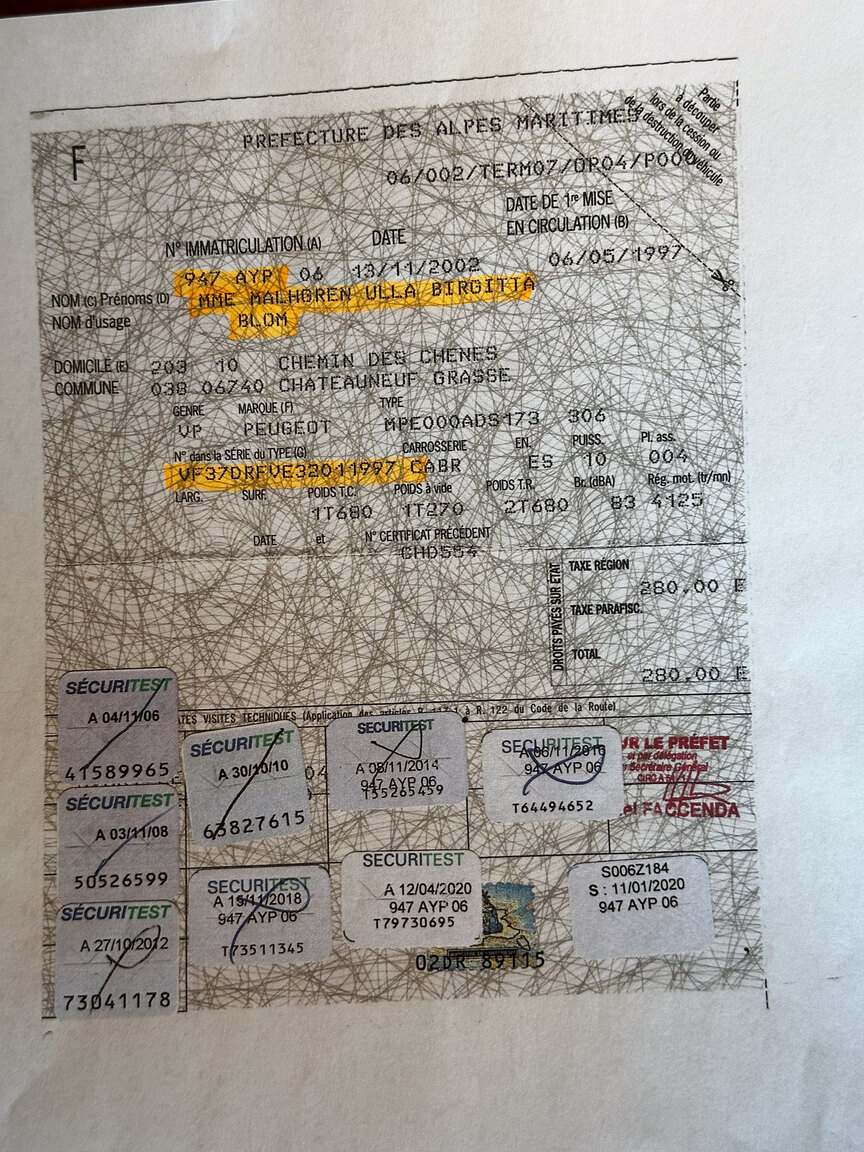 F
PREFECTURE DES ALPES MARITIMES
Partie
à découper
lors de la cession ou
de la destruction du véhicule
06/002/TERM07/OP04/P009
DATE DE 1re MISE
EN CIRCULATION (B)
N° IMMATRICULATION (A) DATE
947 AYP 06 13/11/2002 06/05/1997
NOM (C) Prénoms (D) MME MALHGREN ULLA BIRGITTA
NOM d'usage BLOM
DOMICILE (E) 203 10 CHEMIN DES CHENES
COMMUNE 038 06740 CHATEAUNEUF GRASSE
GENRE MARQUE (F) TYPE
VP PEUGEOT MPE000ADS173 306
N° dans la SÉRIE du TYPE (G) CARROSSERIE EN. PUISS. Pl. ass.
VF37DRFVE32011997 CABR ES 10 004
LARG. SURF. POIDS T.C. POIDS à vide POIDS T.R. Br. (dBA) Rég. mot. (tr/mn)
1T680 1T270 2T680 83 4125
DATE et N° CERTIFICAT PRÉCÉDENT
CHD554
DROITS PAYÉS SUR ÉTAT
TAXE RÉGION
280,00 E
TAXE PARAFISC.
TOTAL
280,00 E
VISITES TECHNIQUES (Application des articles R. 117-1 à R. 122 du Code de la Route)
SÉCURITEST
A 04/11/06
41589965
SÉCURITEST
A 30/10/10
63827615
SECURITEST
A 08/11/2014
947 AYP 06
T55265459
SECURITEST
A 06/11/2016
947 AYP 06
T64494652
UR LE PRÉFET
et par délégation
Secrétaire Général
el FACCENDA
SÉCURITEST
A 03/11/08
50526599
SECURITEST
A 15/11/2018
947 AYP 06
T73511345
SECURITEST
A 12/04/2020
947 AYP 06
T79730695
S006Z184
S : 11/01/2020
947 AYP 06
SÉCURITEST
A 27/10/2012
73041178
02DR 89115